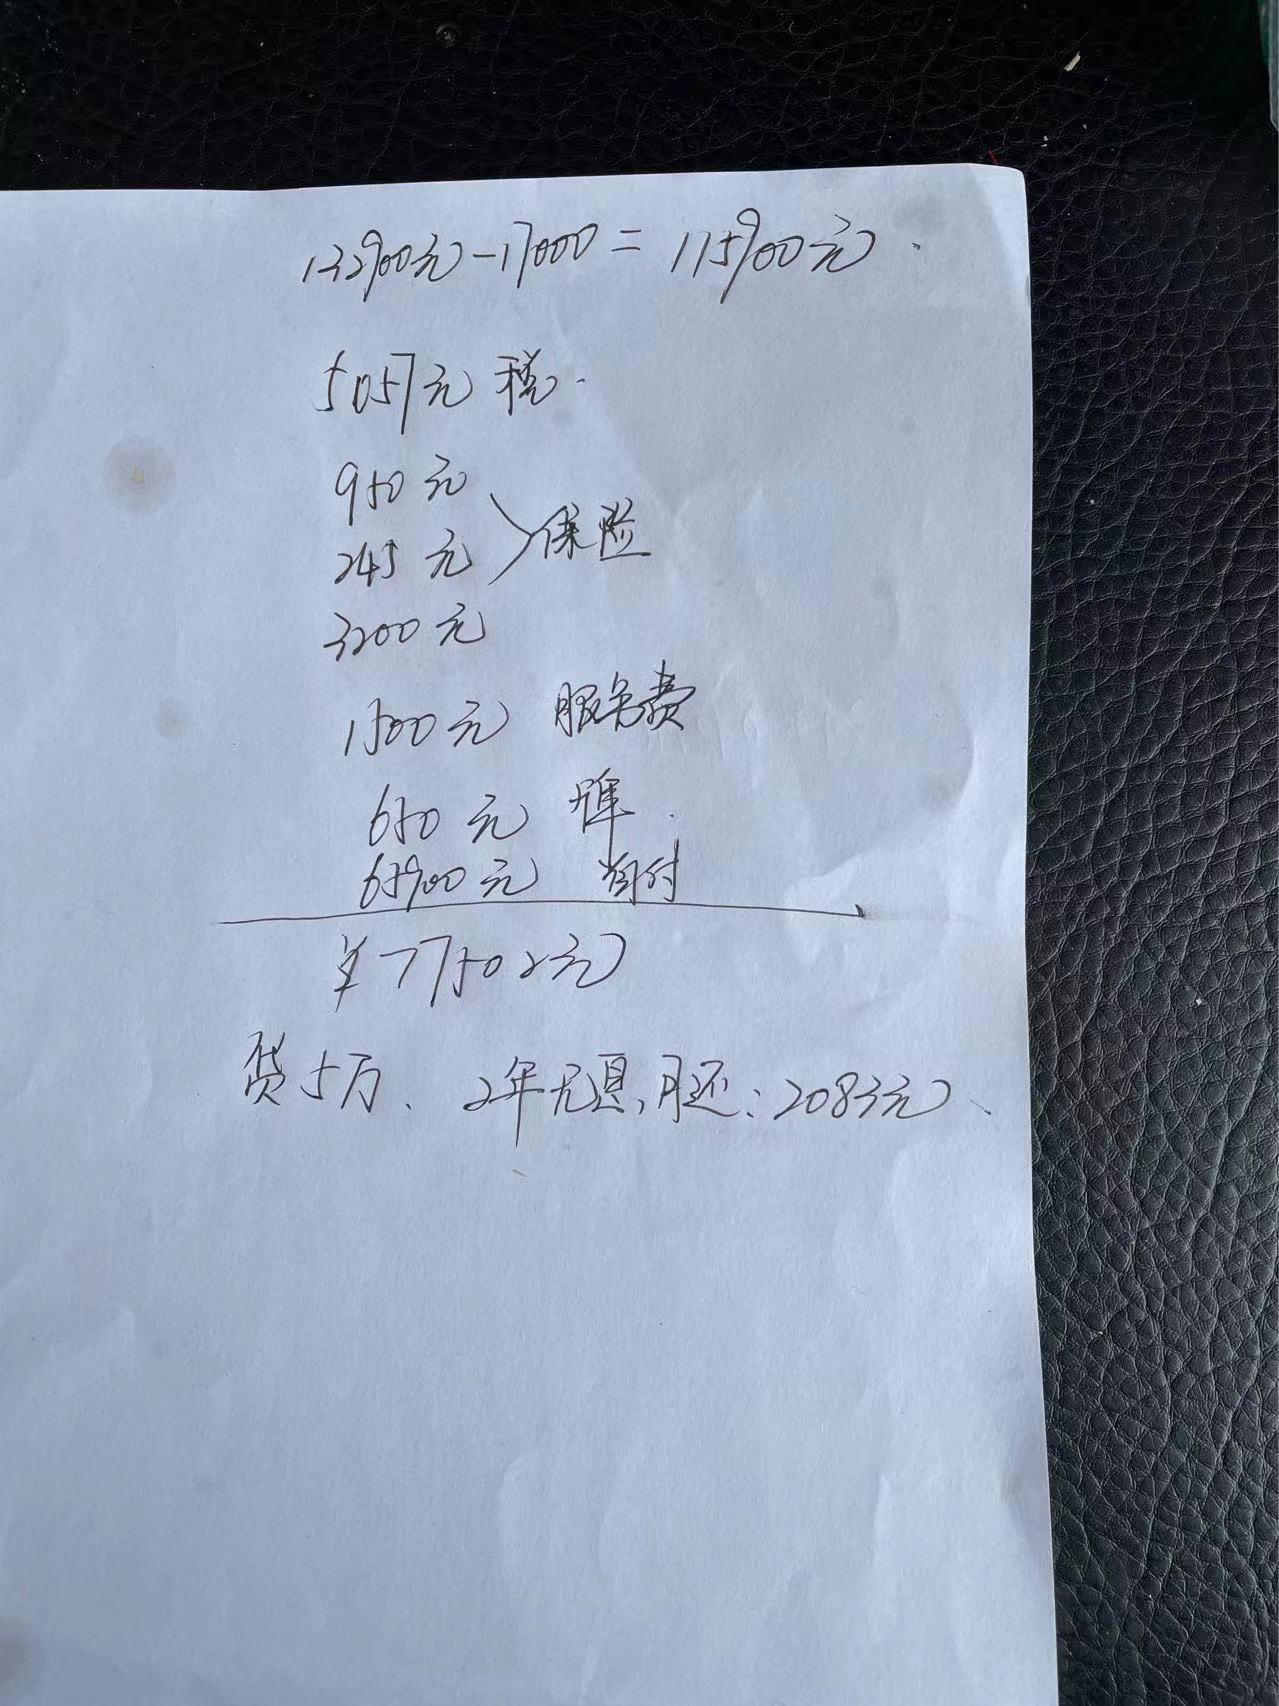 132900元-17000=115900元.
5057元 税.
950元
245元 保险
3200元
1500元 服务费
650元 牌.
65900元 首付
¥77502元
贷5万、2年无息,月还:2083元、